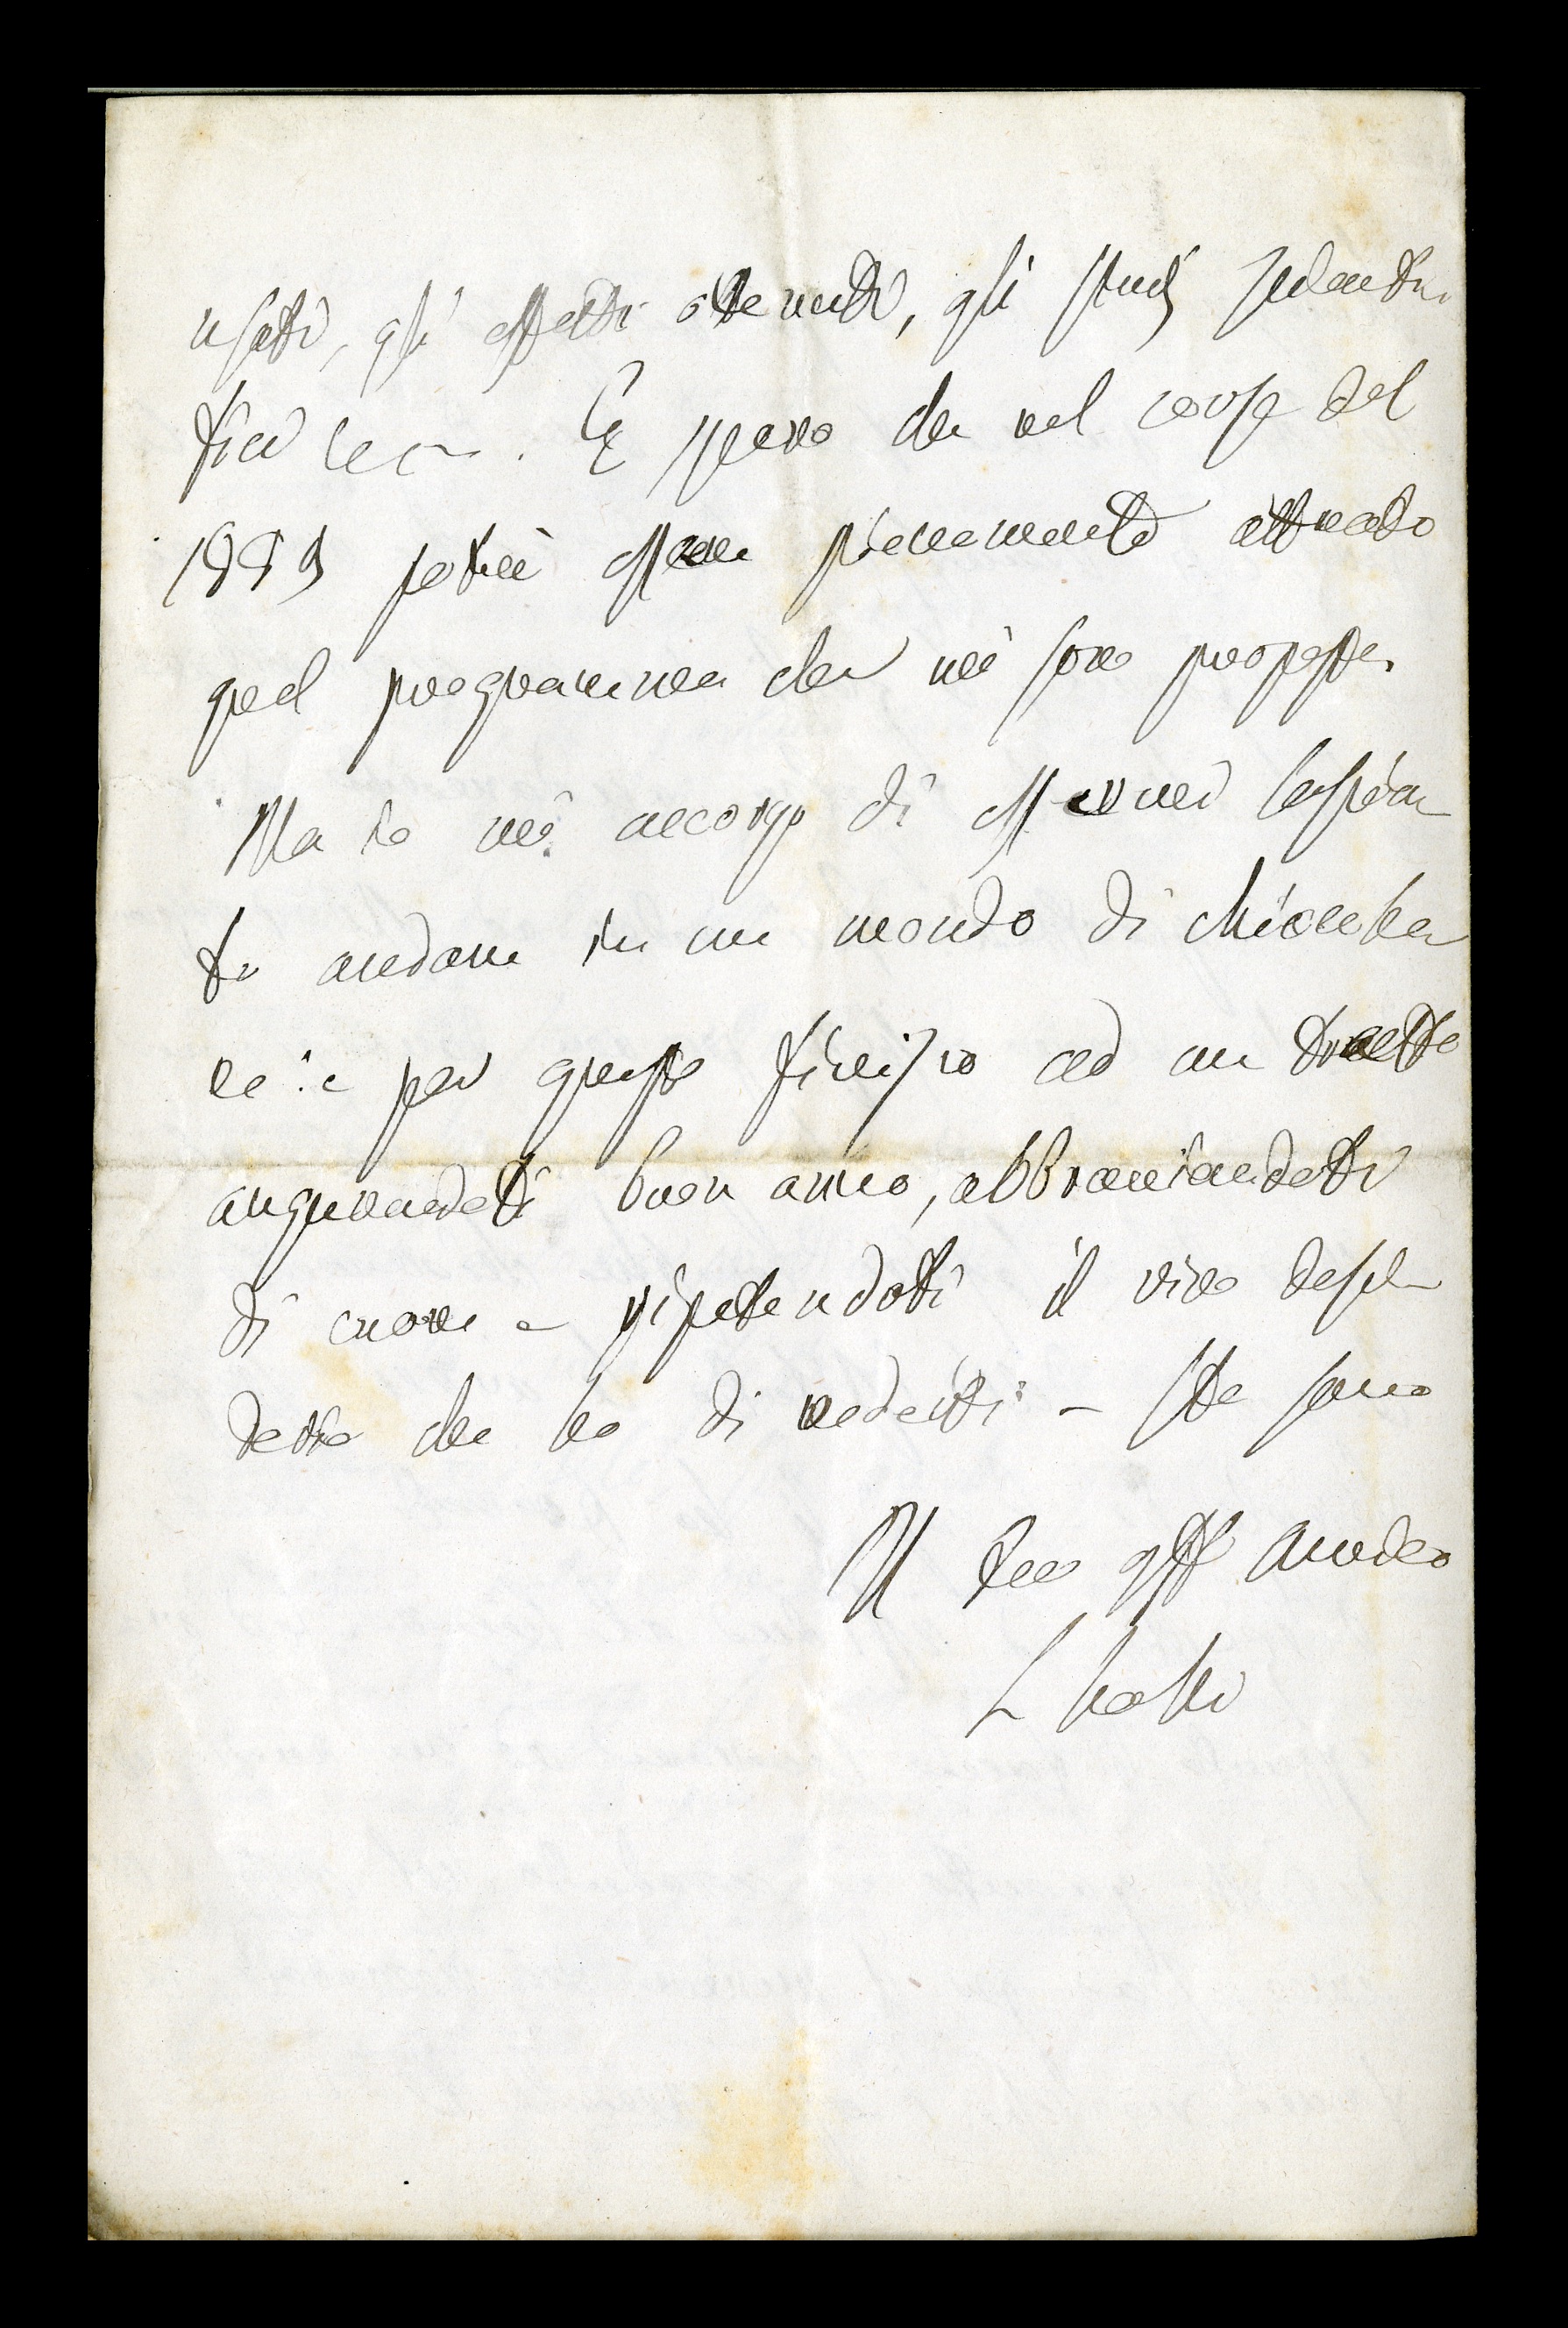 usati, gli effetti ottenuti, gli studi scienti
fici ecc. E spero che nel corso del
potrà essere pienamente attuato
quel programma che mi sono proposto.
Ma io mi accorgo di essermi lascia
to andare in un mondo di chiacche
re: e per questo finisco ad un tratto
augurandoti buon anno, abbracciandoti
di cuore e ripetendoti il vivo desi
derio che ho di vederti - Sta sano
Il tuo aff Amedeo
L